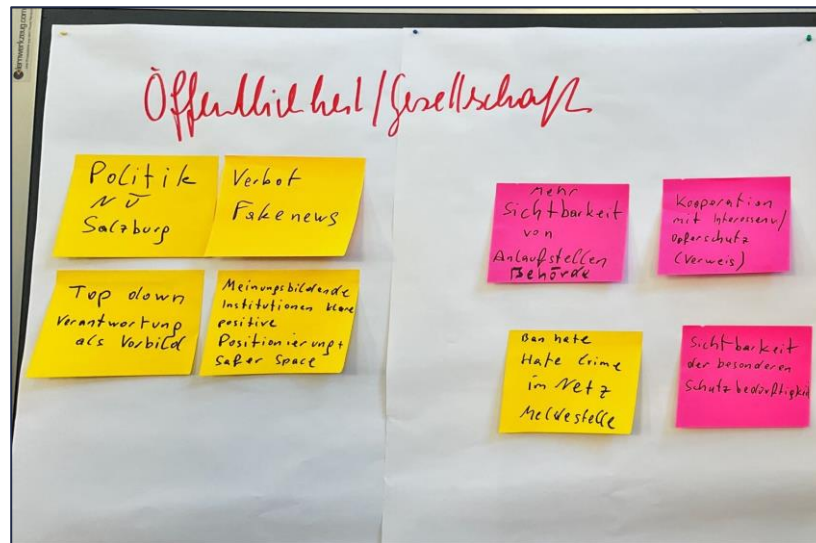 Öffentlichkeit/Gesellschaft
Politik
NÖ
Salzburg
Verbot
Fakenews
Top down
Verantwortung
als Vorbild
Meinungsbildende
Institutionen klare
positive
Positionierung+
Safer Space
mehr
Sichtbarkeit
von
Anlaufstellen
Behörde
Kooperation
mit Interessenv/
Opferschutz
(Verweis)
Ban hate
Hate Crime
im Netz
Meldestelle
Sichtbarkeit
der besonderen
Schutzbedürftigkeit
lernwerkzeug.com